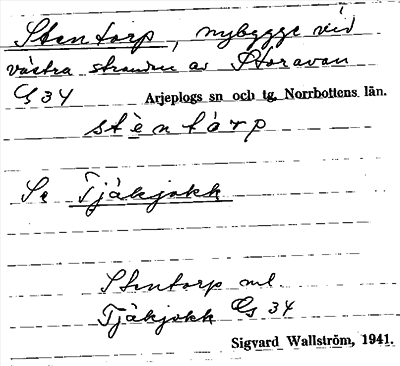 Stentorp, nybygge vid
västra stranden av Storavan
Gs 34 Arjeplogs sn och tg, Norrbottens län.
stèntárp
Se Tjäkjokk
Stentorp ml.
Tjäkjokk Gs 34
Sigvard Wallström, 1941.